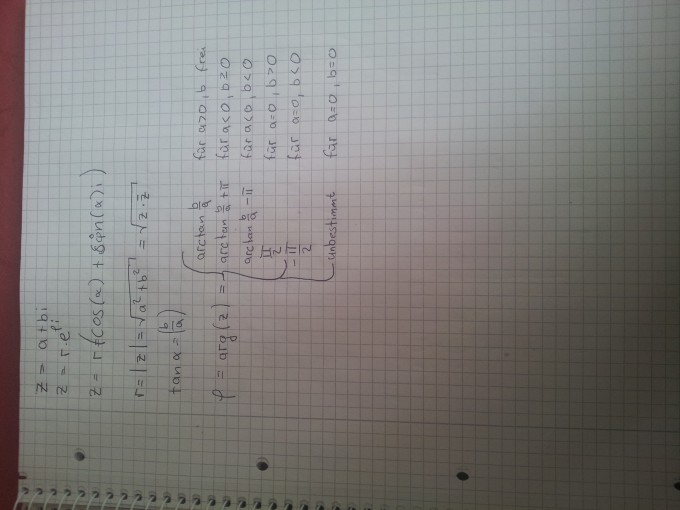 z = a + bi
z = r·e^φi
z = r(cos(α) + sin(α)i)
r = |z| = √(a² + b²) = √(z·z̄)
tan α = (b/a)
φ = arg(z) = {
arctan b/a für a>0, b frei
arctan b/a + π für a<0, b≥0
arctan b/a − π für a<0, b<0
π/2 für a=0, b>0
−π/2 für a=0, b<0
unbestimmt für a=0, b=0